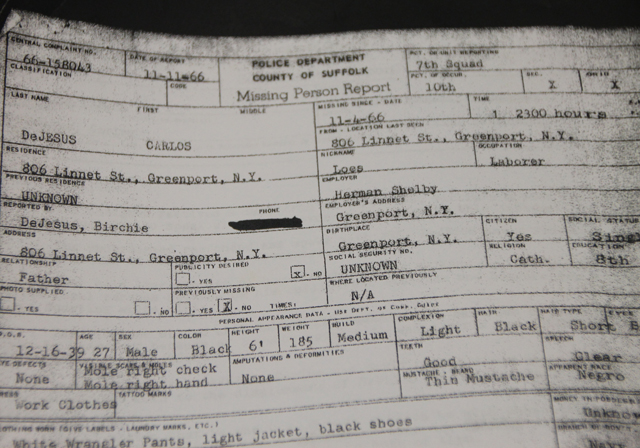 CENTRAL COMPLAINT NO.
66-158043
DATE OF REPORT
11-11-66
POLICE DEPARTMENT
COUNTY OF SUFFOLK
Missing Person Report
PCT. OR UNIT REPORTING
7th Squad
CLASSIFICATION
CODE
PCT. OF OCCUR.
10th
X
X
LAST NAME
FIRST
MIDDLE
DeJESUS
CARLOS
MISSING SINCE - DATE
11-4-66
TIME
2300 hours
FROM - LOCATION LAST SEEN
806 Linnet St., Greenport, N.Y.
RESIDENCE
806 Linnet St., Greenport, N.Y.
NICKNAME
Loes
OCCUPATION
Laborer
PREVIOUS RESIDENCE
UNKNOWN
EMPLOYER
Herman Shelby
REPORTED BY
DeJesus, Birchie
PHONE
EMPLOYER'S ADDRESS
Greenport, N.Y.
ADDRESS
806 Linnet St., Greenport, N.Y.
BIRTHPLACE
Greenport, N.Y.
CITIZEN
Yes
SOCIAL STATUS
RELATIONSHIP
Father
PUBLICITY DESIRED
YES
X
NO
SOCIAL SECURITY NO.
UNKNOWN
RELIGION
Cath.
EDUCATION
8th
PHOTO SUPPLIED
YES
NO
PREVIOUSLY MISSING
YES
X
NO
TIMES:
WHERE LOCATED PREVIOUSLY
N/A
PERSONAL APPEARANCE DATA - USE DEPT. OF CORR. CODES
D.O.B.
12-16-39
AGE
27
SEX
Male
COLOR
Black
HEIGHT
6'
WEIGHT
185
BUILD
Medium
COMPLEXION
Light
HAIR
Black
HAIR TYPE
Short
EYES
EYE DEFECTS
None
VISIBLE SCARS & MOLES
Mole right check
Mole right hand
AMPUTATIONS & DEFORMITIES
None
TEETH
Good
SPEECH
Clear
MUSTACHE - BEARD
Thin Mustache
APPARENT RACE
Negro
TATTOO MARKS
Work Clothes
(GIVE LABELS - LAUNDRY MARKS, ETC.)
White Wrangler Pants, light jacket, black shoes